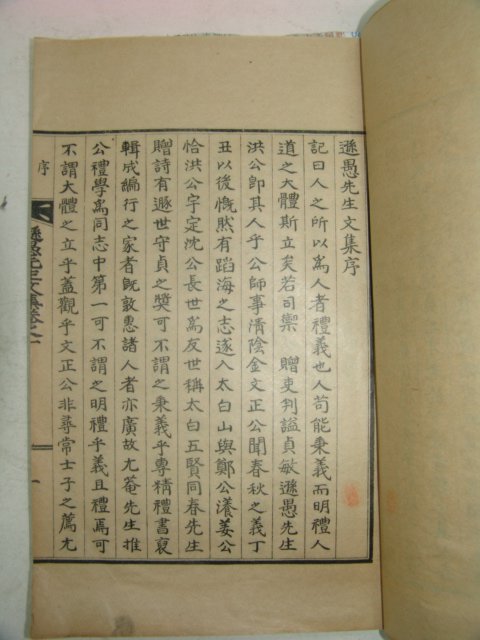 遜愚先生文集序
記曰人之所以爲人者禮義也人苟能秉義而明禮人
道之大體斯立矣若司禦 贈吏判謚貞敏遜愚先生
洪公卽其人乎公師事淸陰金文正公聞春秋之義丁
丑以後慨然有蹈海之志遂入太白山與鄭公瀁姜公
恰洪公宇定沈公長世爲友世稱太白五賢同春先生
贈詩有遯世守貞之奬可不謂之秉義乎專精禮書裒
輯成編行之家者旣敦惠諸人者亦廣故尤菴先生推
公禮學爲同志中第一可不謂之明禮乎義且禮焉可
不謂大體之立乎蓋觀乎文正公非尋常士子之薦尤
序
遜愚先生文集卷之一
一